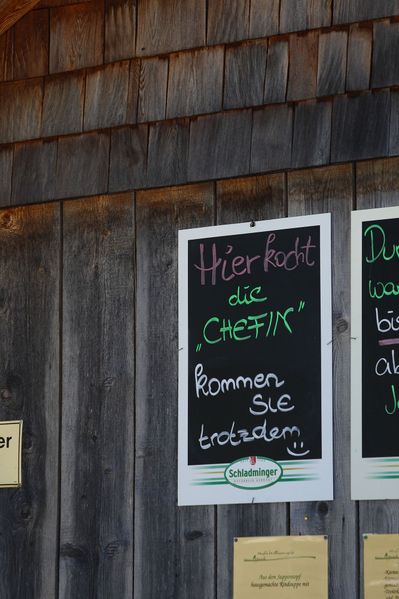 Hier kocht
die
„CHEFIN"
kommen
SIE
trotzdem
Schladminger
bis
Aus dem Suppentopf
hausgemachte Rindsuppe mit